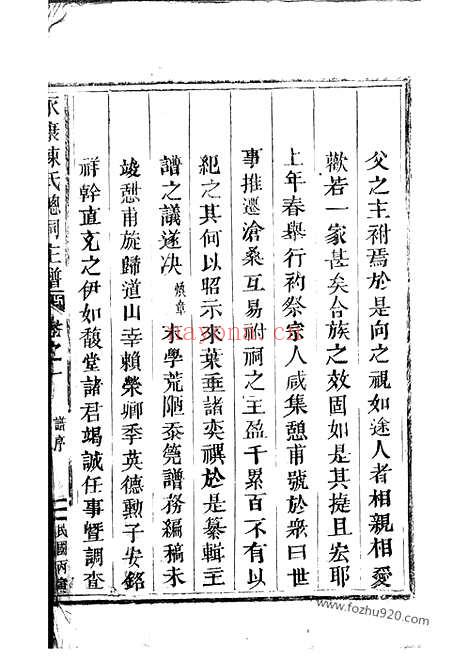 父之主祔焉於是向之視如途人者相親相愛
歡若一家甚矣合族之效固如是其捷且宏耶
上年春舉行礿祭宗人咸集憩甫號於衆曰世
事推遷滄桑互易祔祠之主盈千累百不有以
紀之其何以昭示來葉垂諸奕禩於是纂輯主
譜之議遂决煥章末學荒陋忝筦譜務編稿未
竣憩甫旋歸道山幸賴榮卿季英德勳子安銘
祥幹直克之伊如馥堂諸君竭誠任事曁調查
永康陳氏總祠主譜 卷之一 譜序 民國丙
nayona.cn
www.fozhu920.com